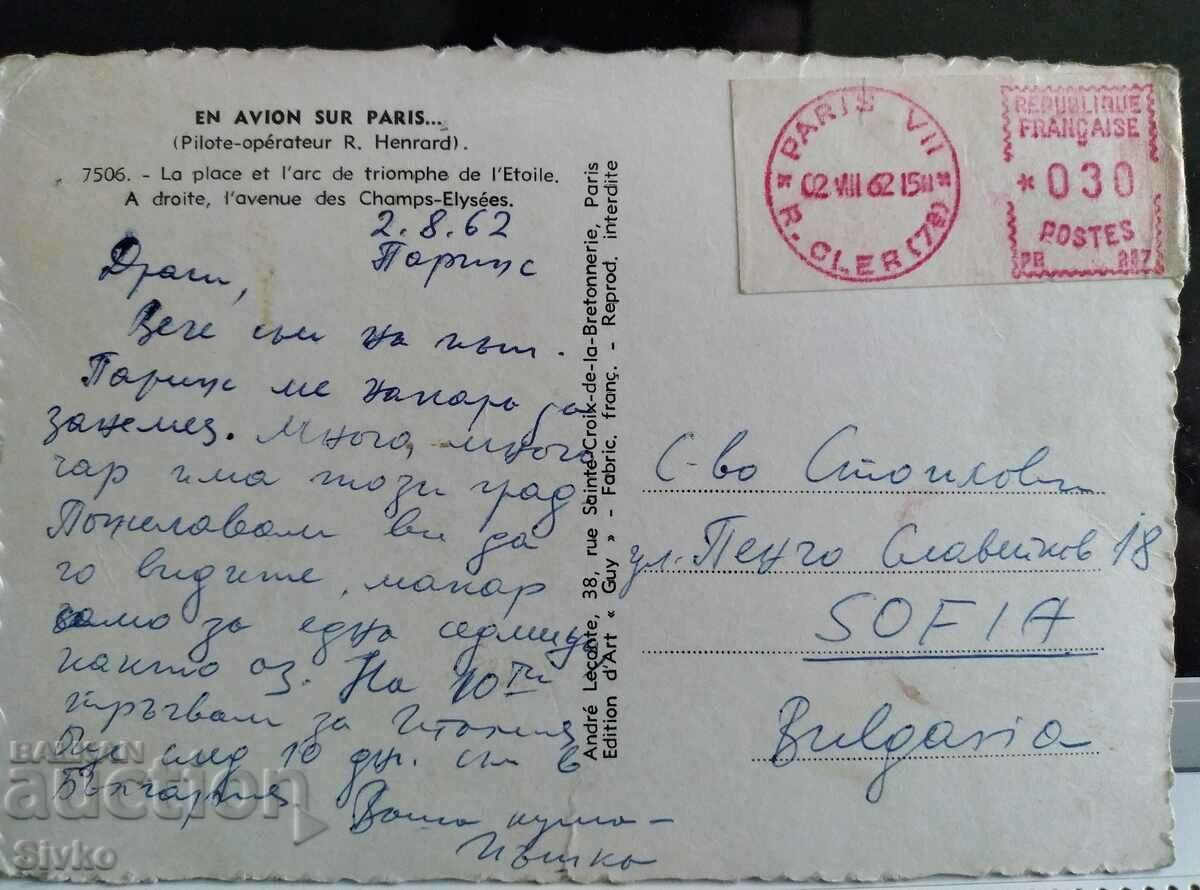 EN AVION SUR PARIS...
(Pilote-opérateur R. Henrard).
7506. - La place et l'arc de triomphe de l'Etoile.
A droite, l'avenue des Champs-Elysées.
2.8.62
Париж
Драги,
Вече съм на път.
Париж ме накара да
занемея. Много, много
чар има този град
Пожелавам ви да
го видите, макар
само за една седмица,
като аз. На 10ти
тръгвам за Италия,
след 10 дн. съм в
България.
Ваша кума -
André Leconte, 38, rue Sainte-Croix-de-la-Bretonnerie, Paris
Edition d'Art « Guy » - Fabric. franç. - Reprod. interdite
PARIS VII
02 VIII 62 15H
R. CLER (7e)
REPUBLIQUE
FRANÇAISE
*030
POSTES
PB 287
С-во Стоилови
ул. Пенчо Славейков 18
SOFIA
Bulgaria
BALKAN
auction
Sivko